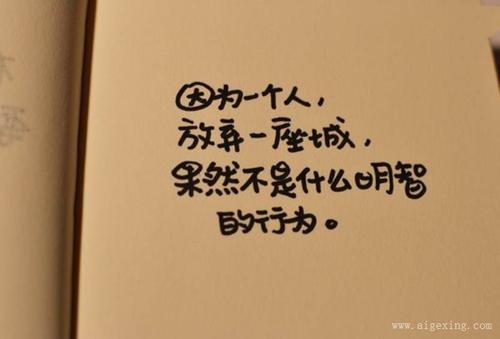 因为一个人，
放弃一座城，
果然不是什么明智
的行为。
www.aigexing.com